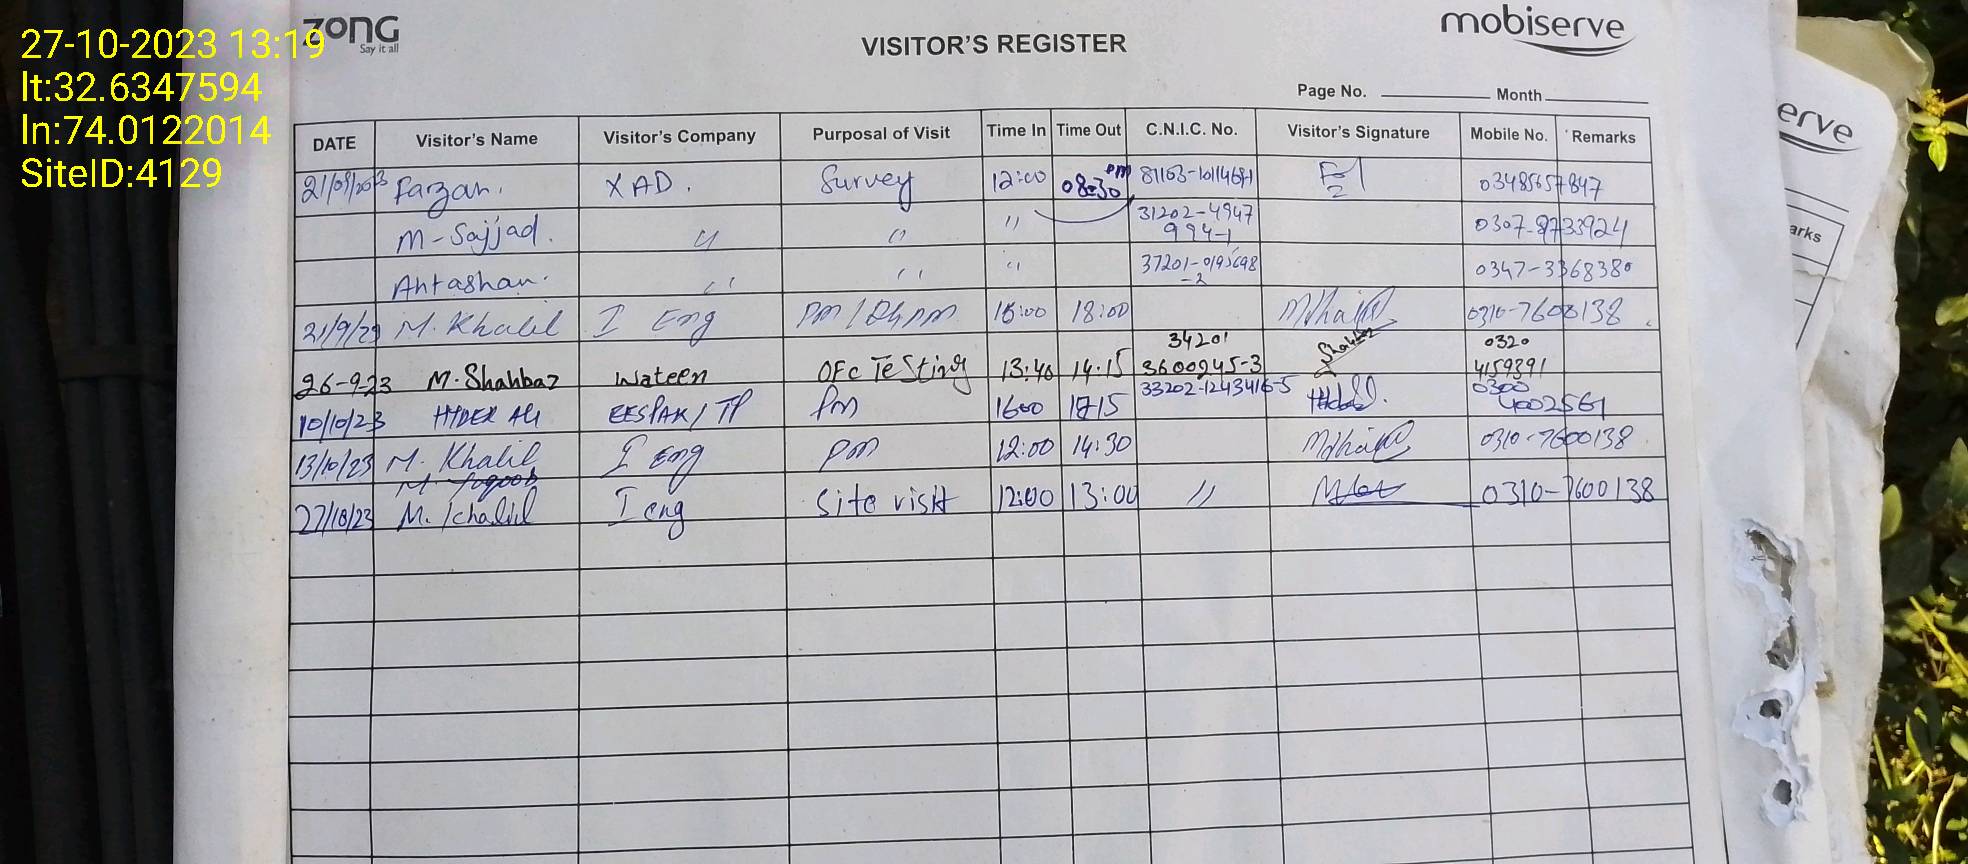 27-10-2023 13:19
lt:32.6347594
ln:74.0122014
SiteID:4129
ZONG
Say it all
mobiserve
VISITOR'S REGISTER
Page No. Month
DATE Visitor's Name Visitor's Company Purposal of Visit Time In Time Out C.N.I.C. No. Visitor's Signature Mobile No. Remarks
Farzan. XAD. Survey 12:00 08:30 pm 03485657847
M-Sajjad. " " " 31202-4947 0307-8733924
994-1
Ahtashan. " " " 37201-0195698 0347-3368380
-2
21/9/23 M. Khalil I Eng 15:00 18:00 0310-7600138
26-9-23 M. Shahbaz Wateen OFC Testing 13:40 14:15 34201 Shahbaz 0320
3600245-3 4159391
10/10/23 HYDER Ali EESPAK/TP PM 1600 1715 33202-1243416-5 0300
4002561
13/10/23 M. Khalil I Eng PM 12:00 14:30 0310-7600138
27/10/23 M. Khalil I eng Site visit 12:00 13:00 " 0310-7600138
erve
arks